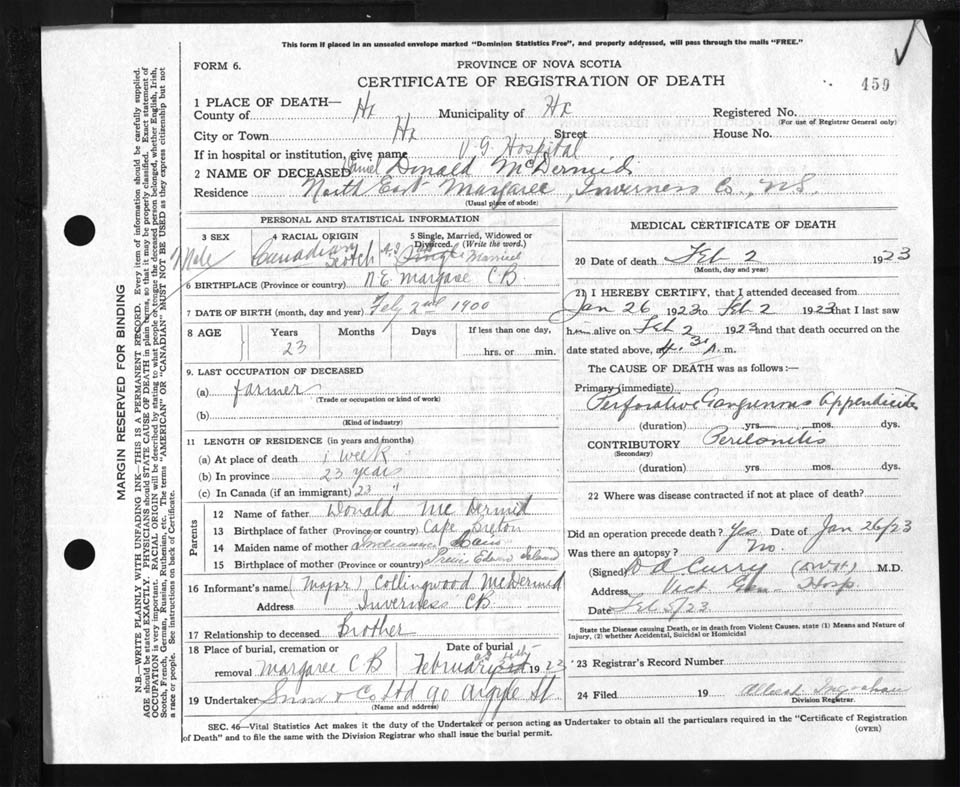 This form if placed in an unsealed envelope marked "Dominion Statistics Free", and properly addressed, will pass through the mails "FREE."
FORM 6.
PROVINCE OF NOVA SCOTIA
CERTIFICATE OF REGISTRATION OF DEATH
459
1 PLACE OF DEATH—
County of Hx Municipality of Hx Registered No.
(For use of Registrar General only)
City or Town Hx Street House No.
If in hospital or institution, give name V G Hospital
2 NAME OF DECEASED Daniel Donald McDermid
Residence North East Margaree, Inverness Co., N.S.
(Usual place of abode)
PERSONAL AND STATISTICAL INFORMATION
3 SEX 4 RACIAL ORIGIN 5 Single, Married, Widowed or Divorced. (Write the word.)
Male Canadian Scotch Single Married
6 BIRTHPLACE (Province or country) N.E. Margaree C B
7 DATE OF BIRTH (month, day and year) Feby 2nd 1900
8 AGE Years Months Days If less than one day,
23 hrs. or min.
9. LAST OCCUPATION OF DECEASED
(a) farmer
(Trade or occupation or kind of work)
(b)
(Kind of industry)
11 LENGTH OF RESIDENCE (in years and months)
(a) At place of death 1 week
(b) In province 23 years
(c) In Canada (if an immigrant) 23 "
Parents
12 Name of father Donald McDermid
13 Birthplace of father (Province or country) Cape Breton
14 Maiden name of mother
15 Birthplace of mother (Province or country) Prince Edward Island
16 Informant's name (Major) Collingwood McDermid
Address Inverness CB
17 Relationship to deceased Brother
18 Place of burial, cremation or removal Margaree C B Date of burial February 1923
19 Undertaker Snow & Co Ltd 90 Argyle St
(Name and address)
MEDICAL CERTIFICATE OF DEATH
20 Date of death Feb 2 1923
(Month, day and year)
21 I HEREBY CERTIFY, that I attended deceased from
Jan 26 1923 to Feb 2 1923 that I last saw
him alive on Feb 2 1923 and that death occurred on
date stated above, at 4.30 A. m.
The CAUSE OF DEATH was as follows:—
Primary (immediate)
Perforative Gangrenous Appendicitis
(duration) yrs. mos. dys.
CONTRIBUTORY Peritonitis
(Secondary)
(duration) yrs. mos. dys.
22 Where was disease contracted if not at place of death?
Did an operation precede death? Yes Date of Jan 26/23
Was there an autopsy? No.
(Signed) D A Curry M.D.
Address, Vict Gen. Hosp.
Date Feb 5/23
State the Disease causing Death, or in death from Violent Causes, state (1) Means and Nature of Injury, (2) whether Accidental, Suicidal or Homicidal
23 Registrar's Record Number
24 Filed 19
Division Registrar.
SEC. 46—Vital Statistics Act makes it the duty of the Undertaker or person acting as Undertaker to obtain all the particulars required in the "Certificate of Registration
of Death" and to file the same with the Division Registrar who shall issue the burial permit.
(OVER)
MARGIN RESERVED FOR BINDING
N.B.—WRITE PLAINLY WITH UNFADING INK—THIS IS A PERMANENT RECORD. Every item of information should be carefully supplied.
AGE should be stated EXACTLY. PHYSICIANS should STATE CAUSE OF DEATH in plain terms, so that it may be properly classified. Exact statement of
OCCUPATION is very important. RACIAL ORIGIN will be described by stating to what people or tongue the deceased person belonged, whether English, Irish,
Scotch, French, German, Russian, Ruthenian, etc. The terms "AMERICAN" OR "CANADIAN" MUST NOT BE USED as they express citizenship but not
a race or people. See instructions on back of Certificate.